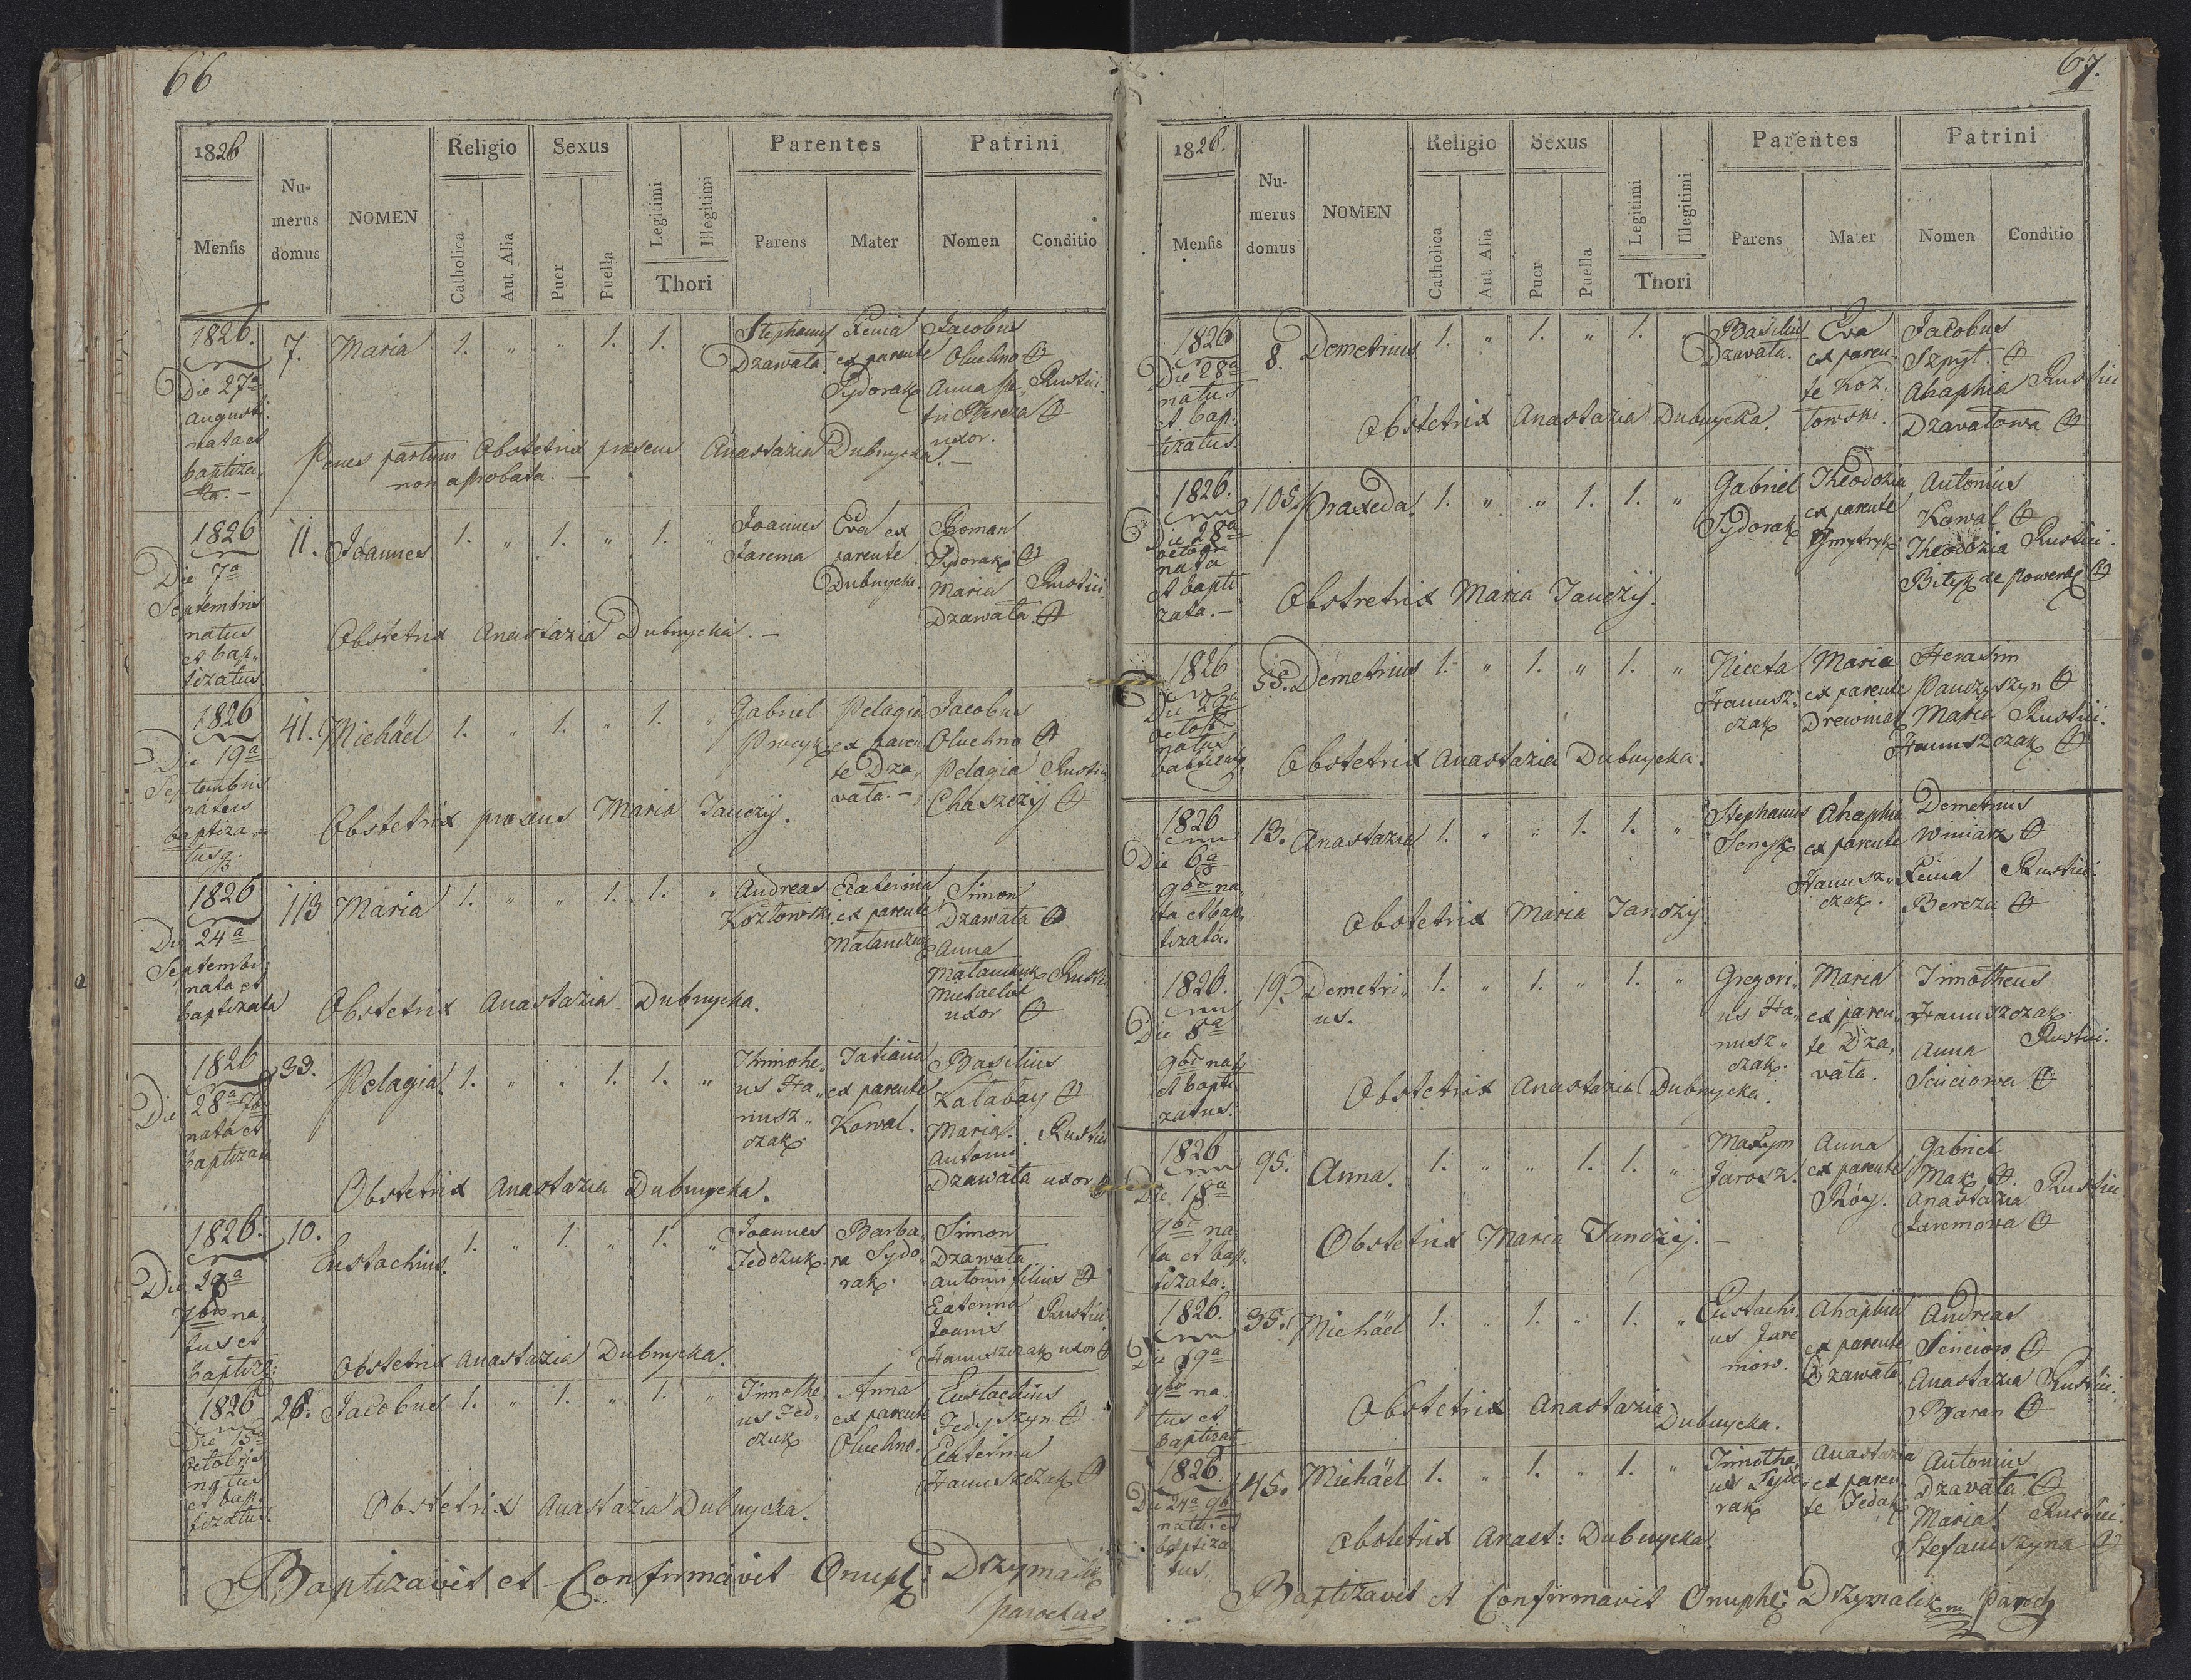 66
1826
Mensis
Nu-
merus
domus
NOMEN
Religio
Catholica
Aut Alia
Sexus
Puer
Puella
Legitimi
Illegitimi
Thori
Parentes
Parens
Mater
Patrini
Nomen
Conditio
1826.
Die 27a
Augusti
nata et
baptiza,,
ta. -
7.
Maria
1. " " 1. 1. "
Stephanus
Dzawata.
Xenia
ex parente
Sydorak
Jacobus
Oluchno
Anna
Bereza
uxor.
Rustici.
Penes partum Obstetrix praesens Anastazia Dubnycka. -
non aprobata. -
1826
Die 7a
Septembris
natus
et bap,,
tizatus.
11.
Joannes.
1. " 1. " 1. "
Joannes
Jarema
Eva ex
parente
Dubnycki.
Roman
Sydorak
Maria
Dzawata.
Rustici.
Obstetrix Anastazia Dubnycka. -
1826
Die 19a
Septembris
natus
baptiza,,
tusq.
41.
Michäel
1. " 1. " 1. "
Gabriel
Procyk
Pelagia
ex paren
te Dza,,
wata. -
Jacobus
Oluchno
Pelagia
Chaszczij
Rustici
Obstetrix praesens Maria Janczij.
1826
Die 24a
Septembr:
nata et
baptizata
113
Maria
1. " " 1. 1. "
Andreas
Kozlowski.
Ecaterina
ex parente
Simon
Dzawata
Anna
Michaelis
uxor
Rustici
Obstetrix Anastazia Dubnycka.
1826
Die 28a 7br
nata et
baptizata
33.
Pelagia.
1. " " 1. 1. "
Thimothe,,
us Ha,,
nusz,,
czak.
Tatianna
ex parente
Kowal.
Basilius
Kalabay
Maria
Antoni
Dzawata uxor
Rustici
Obstetrix Anastazia Dubnycka.
1826.
Die
7bris na,,
tus et
baptiz:
10.
Eustachius.
1. " 1. " 1. "
Joannes
Fedczuk.
Barba,,
ra Sydo,,
rak.
Simon
Dzawata
Antonii filius
Ecaterina
Joannis
Hanuszczak uxor
Rustici.
Obstetrix Anastazia Dubnycka.
1826
Die 15a
Octobris
natus
et bap,,
tizatus.
28.
Jacobus
1. " 1. " 1. "
Timothe,,
us Fed,,
czuk
Anna
ex parente
Oluchno.
Eustachius
Fedyszyn
Ecaterina
Hanuszczak
Obstetrix Anastazia Dubnycka.
Baptizavit et Confirmavit Onuph: Drzymalik
parochus
67.
1826.
Mensis
Nu-
merus
domus
NOMEN
Religio
Catholica
Aut Alia
Sexus
Puer
Puella
Legitimi
Illegitimi
Thori
Parentes
Parens
Mater
Patrini
Nomen
Conditio
1826
Die 28a
natus
et bap,,
tizatus.
8.
Demetrius
1. " 1. " 1.
Basilius
Dzavata.
Eva
ex paren,,
te Koz,,
lowski.
Jacobus
Szpyt.
Ahaphia
Dzavatowa
Rustici
Obstetrix Anastazia Dubnycka.
1826.
Die 28a
octobr
nata
et bapti
zata. -
105.
Praxeda
1. " " 1. 1. "
Gabriel
Sydorak
Theodozia
ex parente
Dmytryk
Antonius
Kowal
Theodozia
Rustici.
Obstretrix Maria Janczij.
1826
Die 29a
octobr
natus
baptizatus.
55.
Demetrius
1. " 1. " 1. "
Niceta
Hanusz,,
czak
Maria
ex parente
Drewniak
Herasim
Panczyszyn
Maria
Hanuszczak
Rustici.
Obstetrix Anastazia Dubnycka.
1826
Die 6a
9bris na
ta et bap,,
tizata.
13.
Anastazia
1. " " 1. 1. "
Stephanus
Senyk
Ahaphia
ex parente
Hanusz,,
czak.
Demetrius
Winiarz
Xenia
Bereza
Rustici.
Obstetrix Maria Janczij.
1826.
Die 8a
9bris natus
et bapti,,
zatus.
19.
Demetri,,
us.
1. " 1. " 1. "
Gregori,,
us Ha,,
nusz,,
czak.
Maria
ex paren,,
te Dza,,
vata.
Timotheus
Hanuszczak.
Anna
Senciowa
Rustici.
Obstetrix Anastazia Dubnycka.
1826
Die 18a
9br na
ta et bap,,
tizata.
95.
Anna.
1. " " 1. 1. "
Maxym
Jarosz.
Anna
ex parente
Róy.
Gabriel
Mak
Anastazia
Jaremowa
Rustici
Obstetrix Maria Janczij. -
1826.
Die 19a
9br na,,
tus et
baptizat
35.
Michäel
1. " 1. " 1. "
Eustachi,,
us Jare
mow.
Ahaphia
ex parente
Dzawata
Andreas
Senciow
Anastazia
Baran
Rustici.
Obstetrix Anastazia
Dubnycka.
1826.
Die 24a 9b
natus et
baptiza
tus.
45.
Michäel
1. " 1. " 1. "
Timothe,,
us Sydo,,
rak
Anastazia
ex paren
te Fedak
Antonius
Dzavata.
Maria
Stefaniszyna
Rustici.
Obstetrix Anast: Dubnycka.
Baptizavit et Confirmavit Onuph: Drzymalik mp Paroch